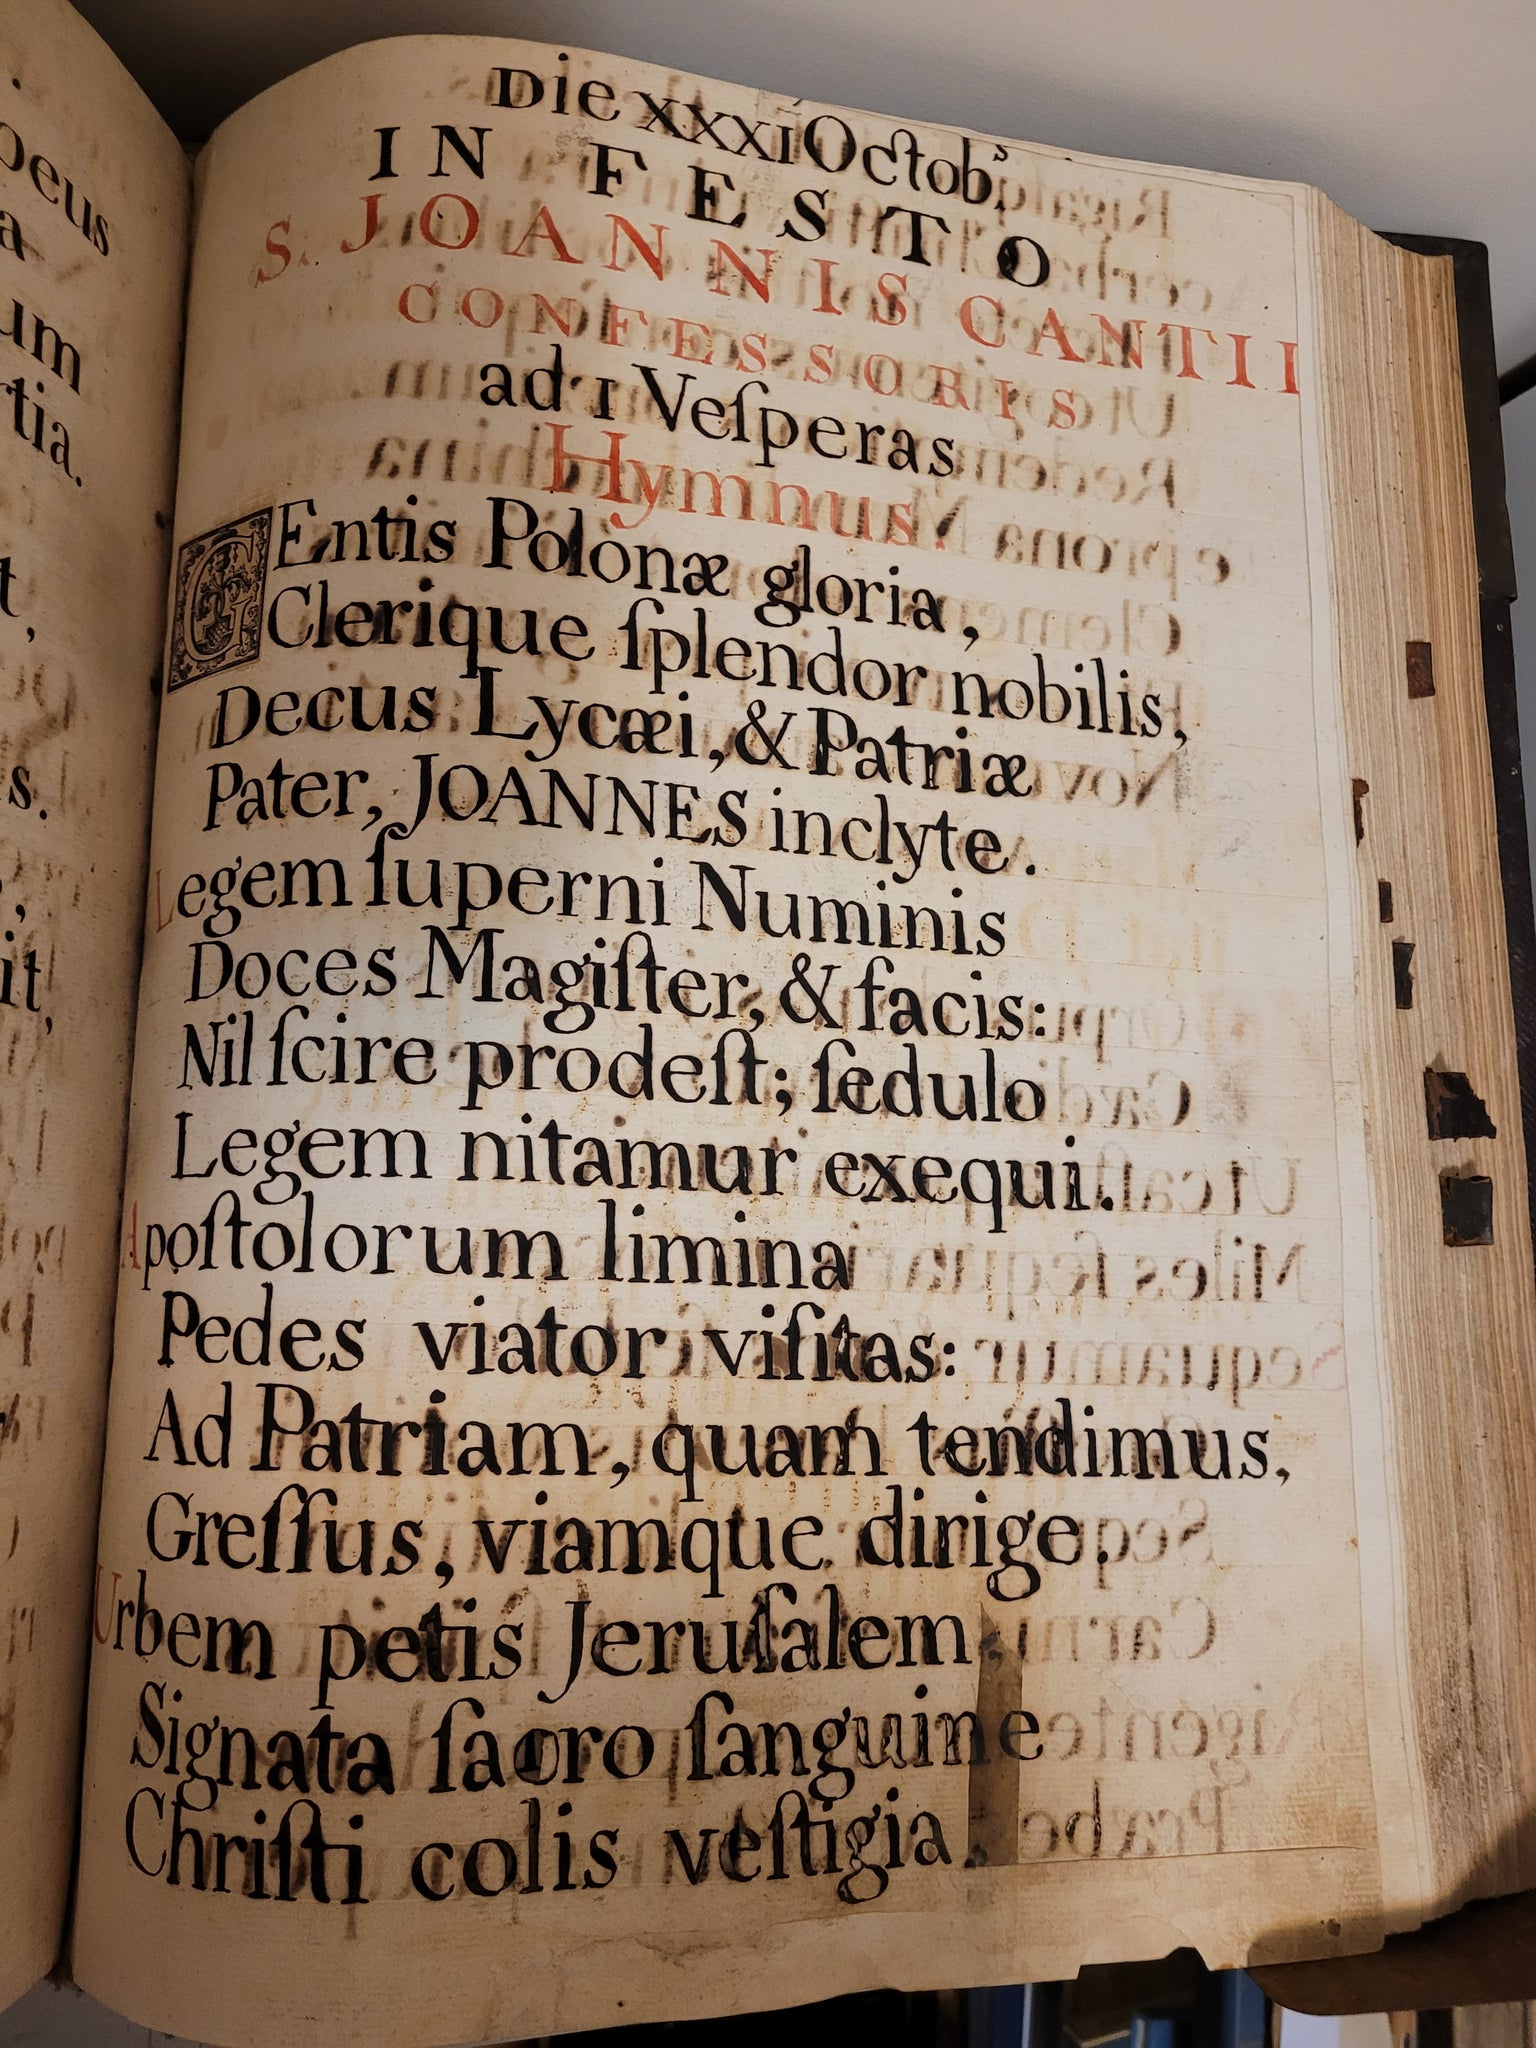 peus
a
um
rtia.
t,
s.
,
it,
Die XXXI Octob.s
IN FESTO
S. JOANNIS CANTII
CONFESSORIS
ad I Veſperas
Hymnus.
GEntis Polonæ gloria,
Clerique ſplendor nobilis,
Decus Lycæi, & Patriæ
Pater, JOANNES inclyte.
Legem ſuperni Numinis
Doces Magiſter, & facis:
Nil ſcire prodeſt; ſedulo
Legem nitamur exequi.
Apoſtolorum limina
Pedes viator viſitas:
Ad Patriam, quam tendimus,
Greſſus, viamque dirige.
Urbem petis Jeruſalem;
Signata ſacro ſanguine
Chriſti colis veſtigia,